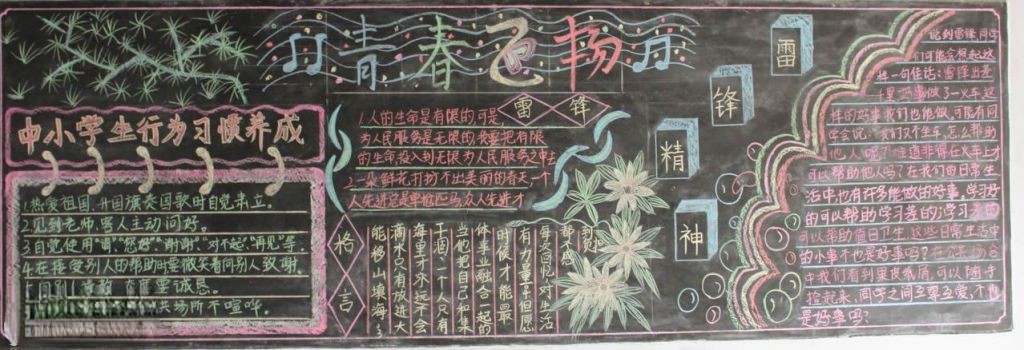 青春
中小学生行为习惯养成
1.热爱祖国,升国旗奏国歌时自觉肃立。
2.见到老师,客人主动问好。
3.自觉使用"请""您好""谢谢""对不起""再见"等。
4.在接受别人的帮助时要微笑着向别人致谢。
共场所不喧哗。
雷锋
1.人的生命是有限的,可是
为人民服务是无限的,我要把有限
的生命投入到无限为人民服务之中去
2.一朵鲜花打扮不出美丽的春天,一个
人先进总是单枪匹马,众人先进才
能移山填海
格言
滴水只有放进大
海里才永远不会
干涸,一个人只有
当他把自己和集
体事业融合一起的
时候才能最
有力量
每次回忆,对生活
都不感
雷锋精神
说到雷锋,同学
们可能会想起这
样一句佳话:雷锋出差
千里,好事做了一火车,这
样的好事我们也能做,可能有同
学会说:我们又不坐车,怎么帮助
他人呢?难道非得在火车上才
可以帮助他人吗?在我们的日常生
活中也有许多能做的好事。学习好
的可以帮助学习差的;学习
可以帮助值日卫生,这些日常生活中
的小事不也是好事吗?在
中我们看到果皮纸屑,可以随手
捡起来,同学之间互尊互爱,不
是吗?